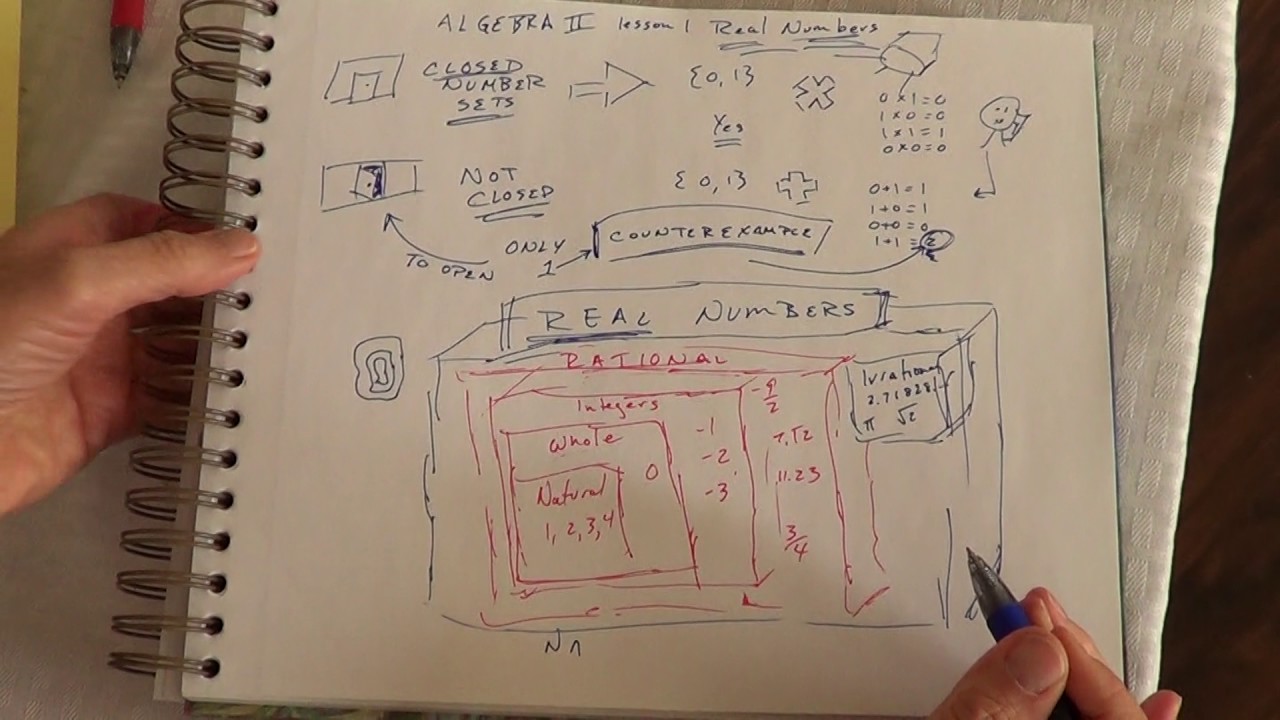 ALGEBRA II lesson 1 Real Numbers
CLOSED
NUMBER
SETS
{0, 1}
Yes
0 x 1 = 0
1 x 0 = 0
1 x 1 = 1
0 x 0 = 0
NOT
CLOSED
{0, 1}
0+1 = 1
1+0 = 1
0+0 = 0
1+1 = 2
TO OPEN
ONLY
1
COUNTEREXAMPLE
REAL NUMBERS
RATIONAL
Integers
Whole
Natural
1, 2, 3, 4
0
-1
-2
-3
-9/2
11.23
3/4
Irrational
2.71828
π √2